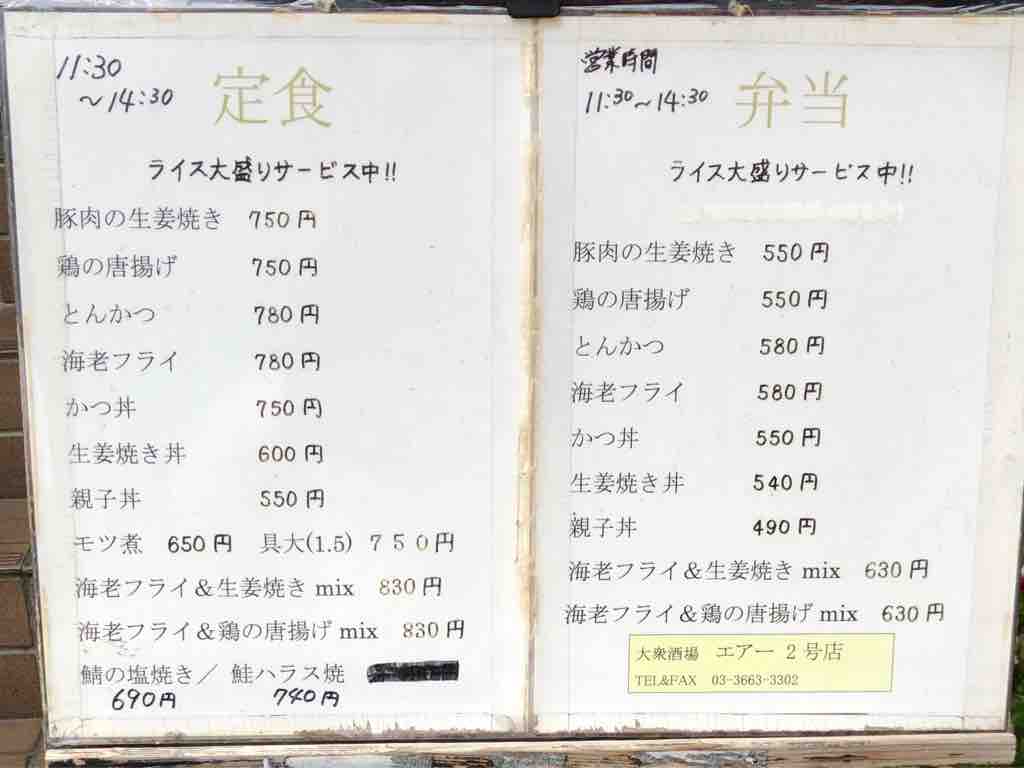 11:30
～14:30
定食
ライス大盛りサービス中!!
豚肉の生姜焼き 750円
鶏の唐揚げ 750円
とんかつ 780円
海老フライ 780円
かつ丼 750円
生姜焼き丼 600円
親子丼 550円
モツ煮 650円 具大(1.5) ７５０円
海老フライ＆生姜焼き mix 830円
海老フライ＆鶏の唐揚げ mix 830円
鯖の塩焼き／ 鮭ハラス焼
690円 740円
営業時間
11:30～14:30
弁当
ライス大盛りサービス中!!
豚肉の生姜焼き 550円
鶏の唐揚げ 550円
とんかつ 580円
海老フライ 580円
かつ丼 550円
生姜焼き丼 540円
親子丼 490円
海老フライ＆生姜焼き mix 630円
海老フライ＆鶏の唐揚げ mix 630円
大衆酒場 エアー 2号店
TEL&FAX 03-3663-3302